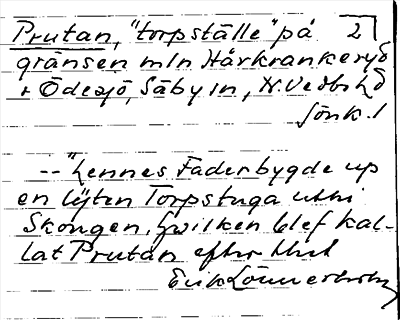 Prutan, "torpställe" på 2
gränsen mln Hårkrankeryd
+ Ödesjö, Säby sn, N. Vedbo hd
Jönk. l
-- "hennes Fader bygde up
en lijten Torpstuga uthi
Skougen, hwilken blef kal-
lat Prutan efter
Erik Lönnerholm